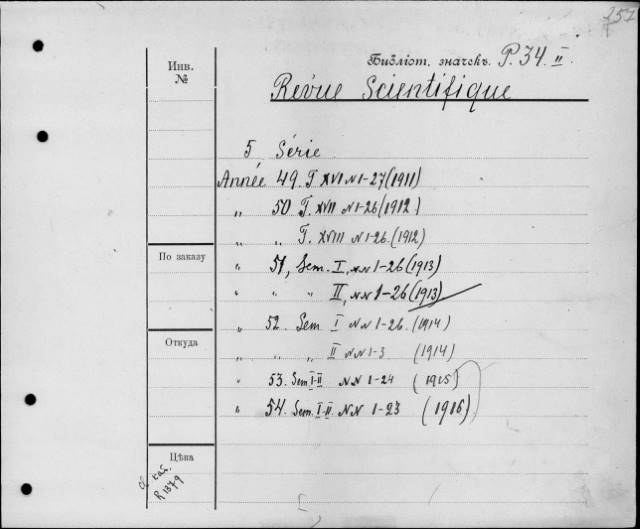 257
Библіот. значекъ. P. 34. II.
Инв.
№
Revue Scientifique
5 Série
Année 49 T. XVI N 1-27 (1911)
„ 50 T. XVII N 1-26 (1912)
„ „ T. XVIII N 1-26. (1912)
По заказу
„ 51, Sem. I, NN 1-26 (1913)
„ „ „ II, NN 1-26 (1913)
„ 52. Sem I NN 1-26. (1914)
Откуда
„ „ „ II NN 1-3 (1914)
„ 53. Sem I-II NN 1-24 (1915)
„ 54. Sem. I-II. NN 1-23 (1916)
Цѣна
R 1379